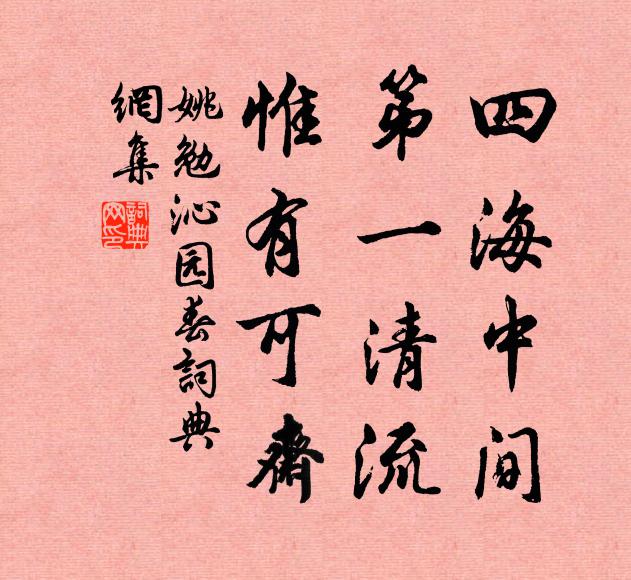 四海中间
第一清流
惟有可齋
姚勉沁园春詞典
網集
詞典
网印